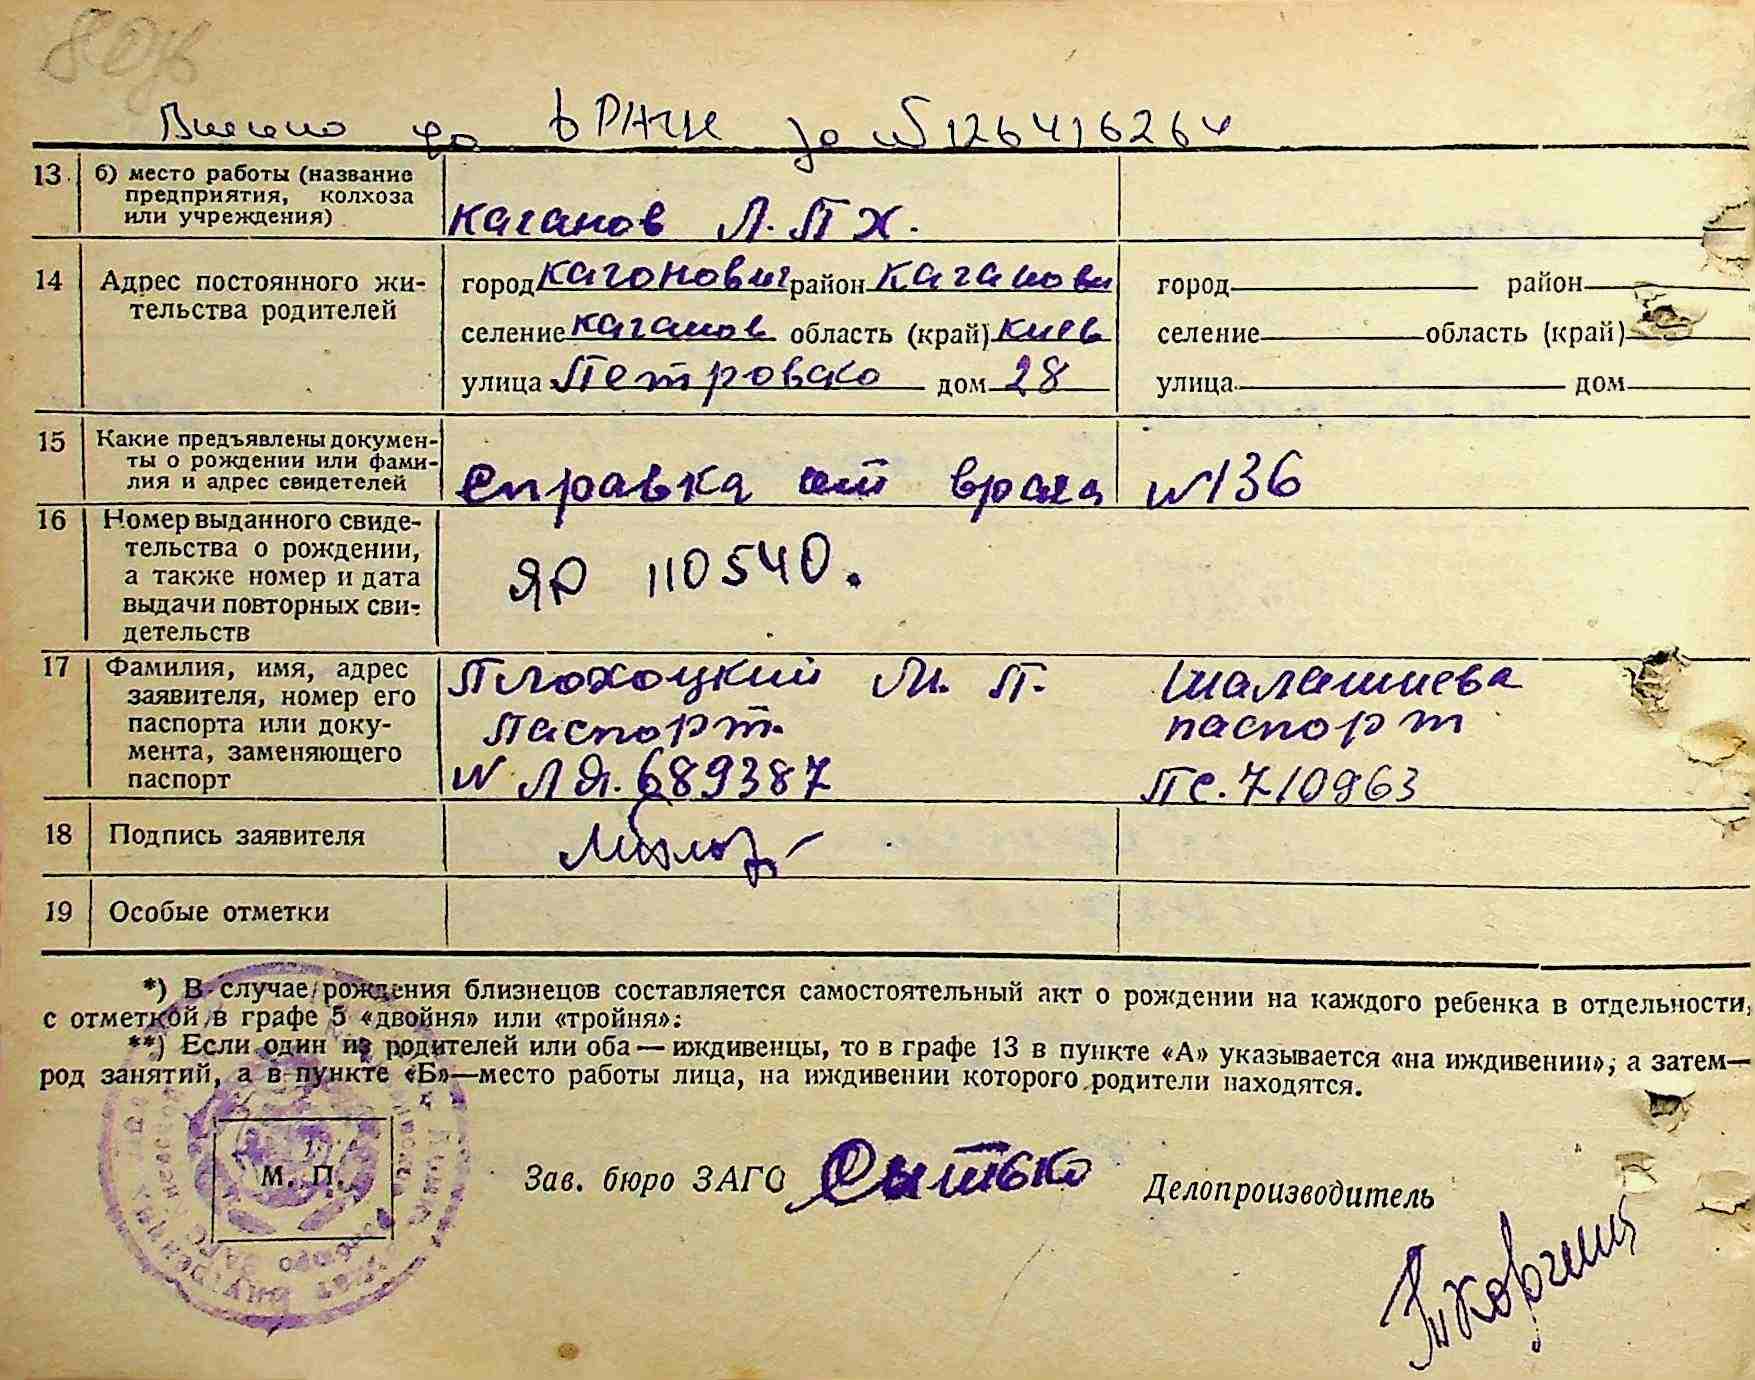 Внесено до ДРАЦС за №126416264
13 б) место работы (название
предприятия, колхоза
или учреждения)
Каганов Л.ПХ.
14 Адрес постоянного жи-
тельства родителей
город Кагонович район Каганови
селение Каганов область (край) Киев
улица Петровско дом 28
город район
селение область (край)
улица дом
15 Какие предъявлены докумен-
ты о рождении или фами-
лия и адрес свидетелей
Справка от врача №136
16 Номер выданного свиде-
тельства о рождении,
а также номер и дата
выдачи повторных сви-
детельств
ЯР 110540.
17 Фамилия, имя, адрес
заявителя, номер его
паспорта или доку-
мента, заменяющего
паспорт
Плохоцкий М. П.
Паспорт.
№ ЛЯ. 689387
Шалашнева
паспорт
ПС. 710963
18 Подпись заявителя
19 Особые отметки
*) В случае рождения близнецов составляется самостоятельный акт о рождении на каждого ребенка в отдельности,
с отметкой в графе 5 «двойня» или «тройня».
**) Если один из родителей или оба — иждивенцы, то в графе 13 в пункте «А» указывается «на иждивении», а затем—
род занятий, а в пункте «Б»—место работы лица, на иждивении которого родители находятся.
М. П.
Зав. бюро ЗАГС Сытько Делопроизводитель